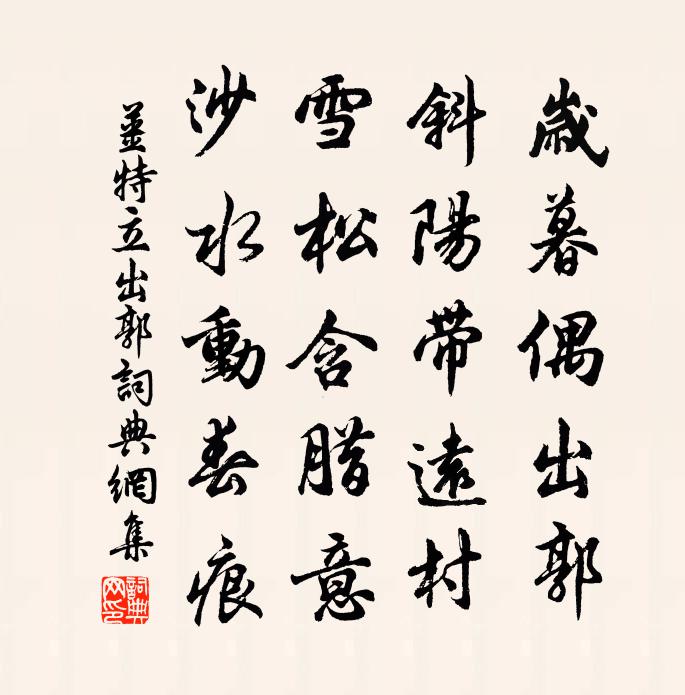 歲暮偶出郭
斜陽帶遠村
雪松含腊意
沙水動春痕
姜特立出郭詞典網集
詞典網印